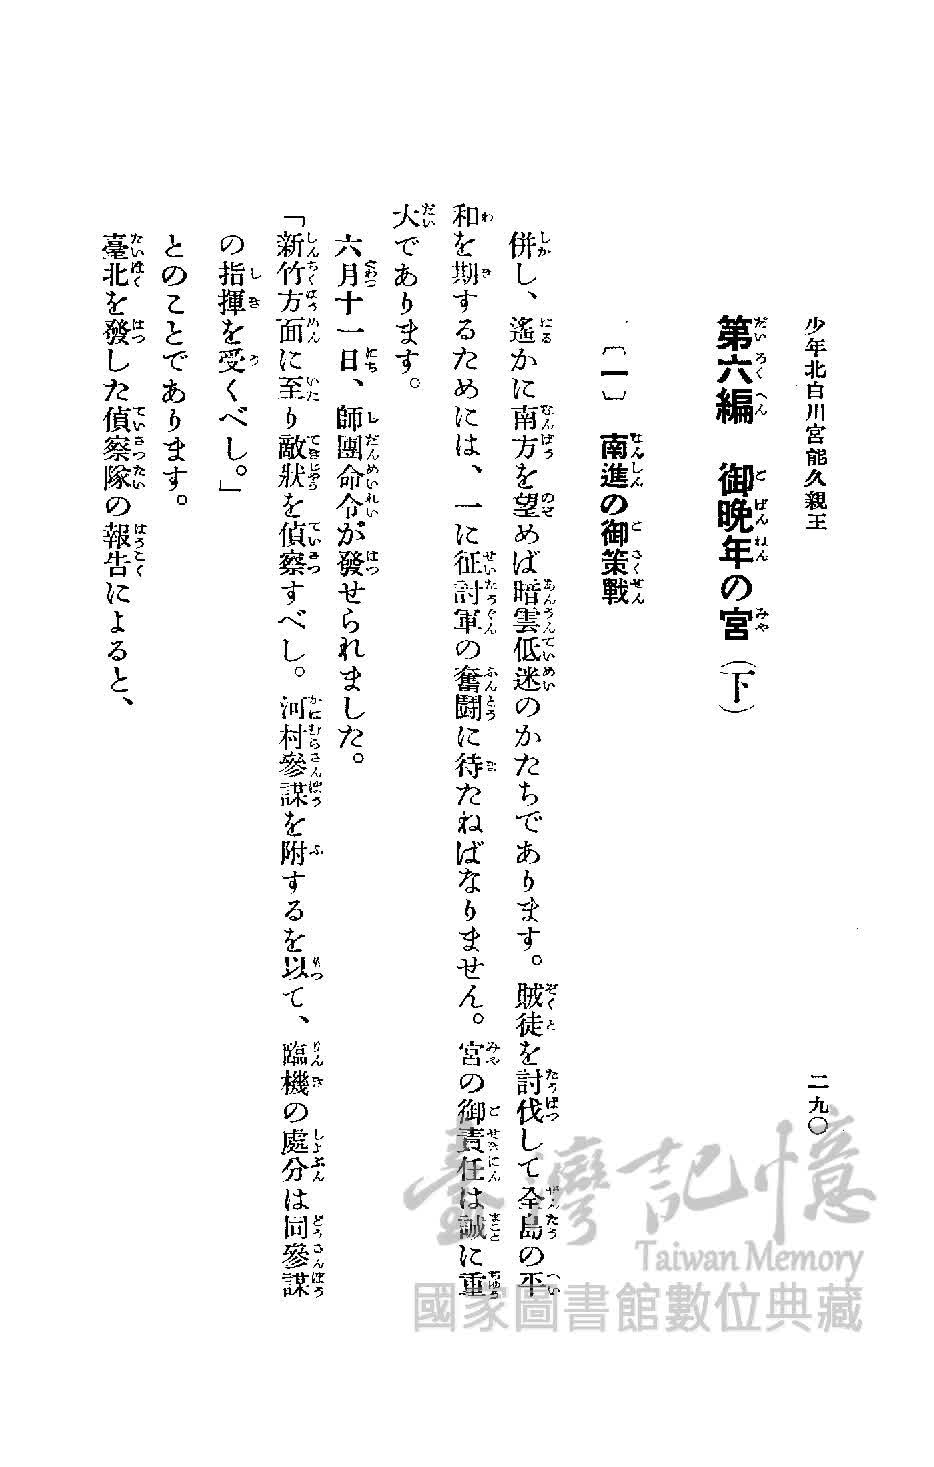 少年北白川宮能久親王
二九〇
第六編 御晩年の宮(下)
〔一〕 南進の御策戰
併し、遙かに南方を望めば暗雲低迷のかたちであります。賊徒を討伐して全島の平
和を期するためには、一に征討軍の奮鬪に待たねばなりません。宮の御責任は誠に重
大であります。
六月十一日、師團命令が發せられました。
「新竹方面に至り敵狀を偵察すべし。河村參謀を附するを以て、臨機の處分は同參謀
の指揮を受くべし。」
とのことであります。
臺北を發した偵察隊の報告によると、
臺灣記憶
Taiwan Memory
國家圖書館數位典藏